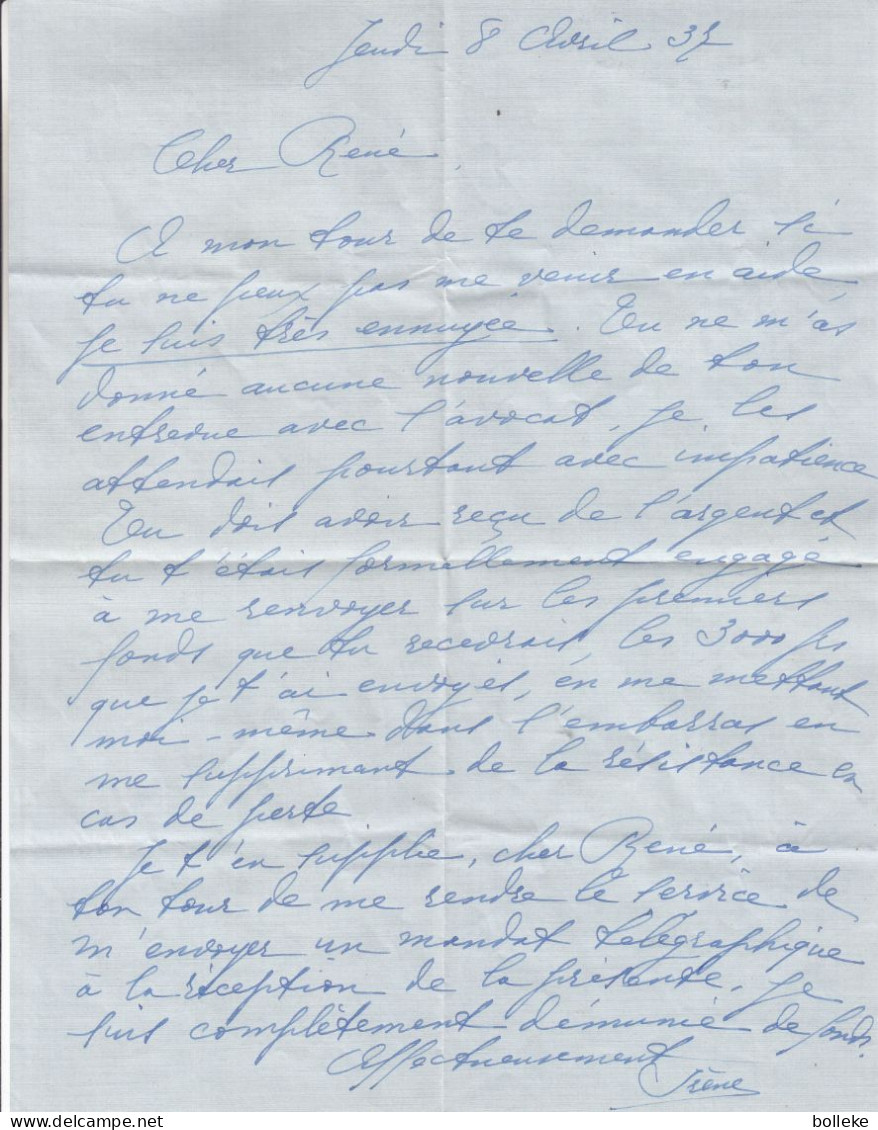 Jeudi 8 Avril 37
Cher René
A mon tour de te demander si
tu ne peux pas me venir en aide,
je suis très ennuyée. Tu ne m'as
donné aucune nouvelle de ton
entrevue avec l'avocat, je les
attendais pourtant avec impatience
Tu dois avoir reçu de l'argent et
tu t'étais formellement engagé
à me renvoyer sur les premiers
fonds que tu recevrais, les 3000 frs
que je t'ai envoyés, en me mettant
moi-même dans l'embarras en
me supprimant de la résistance en
cas de perte
Je t'en supplie, cher René, à
ton tour de me rendre le service de
m'envoyer un mandat télégraphique
à la réception de la présente. Je
suis complètement démunie de fonds.
Affectueusement
Irène
bolleke